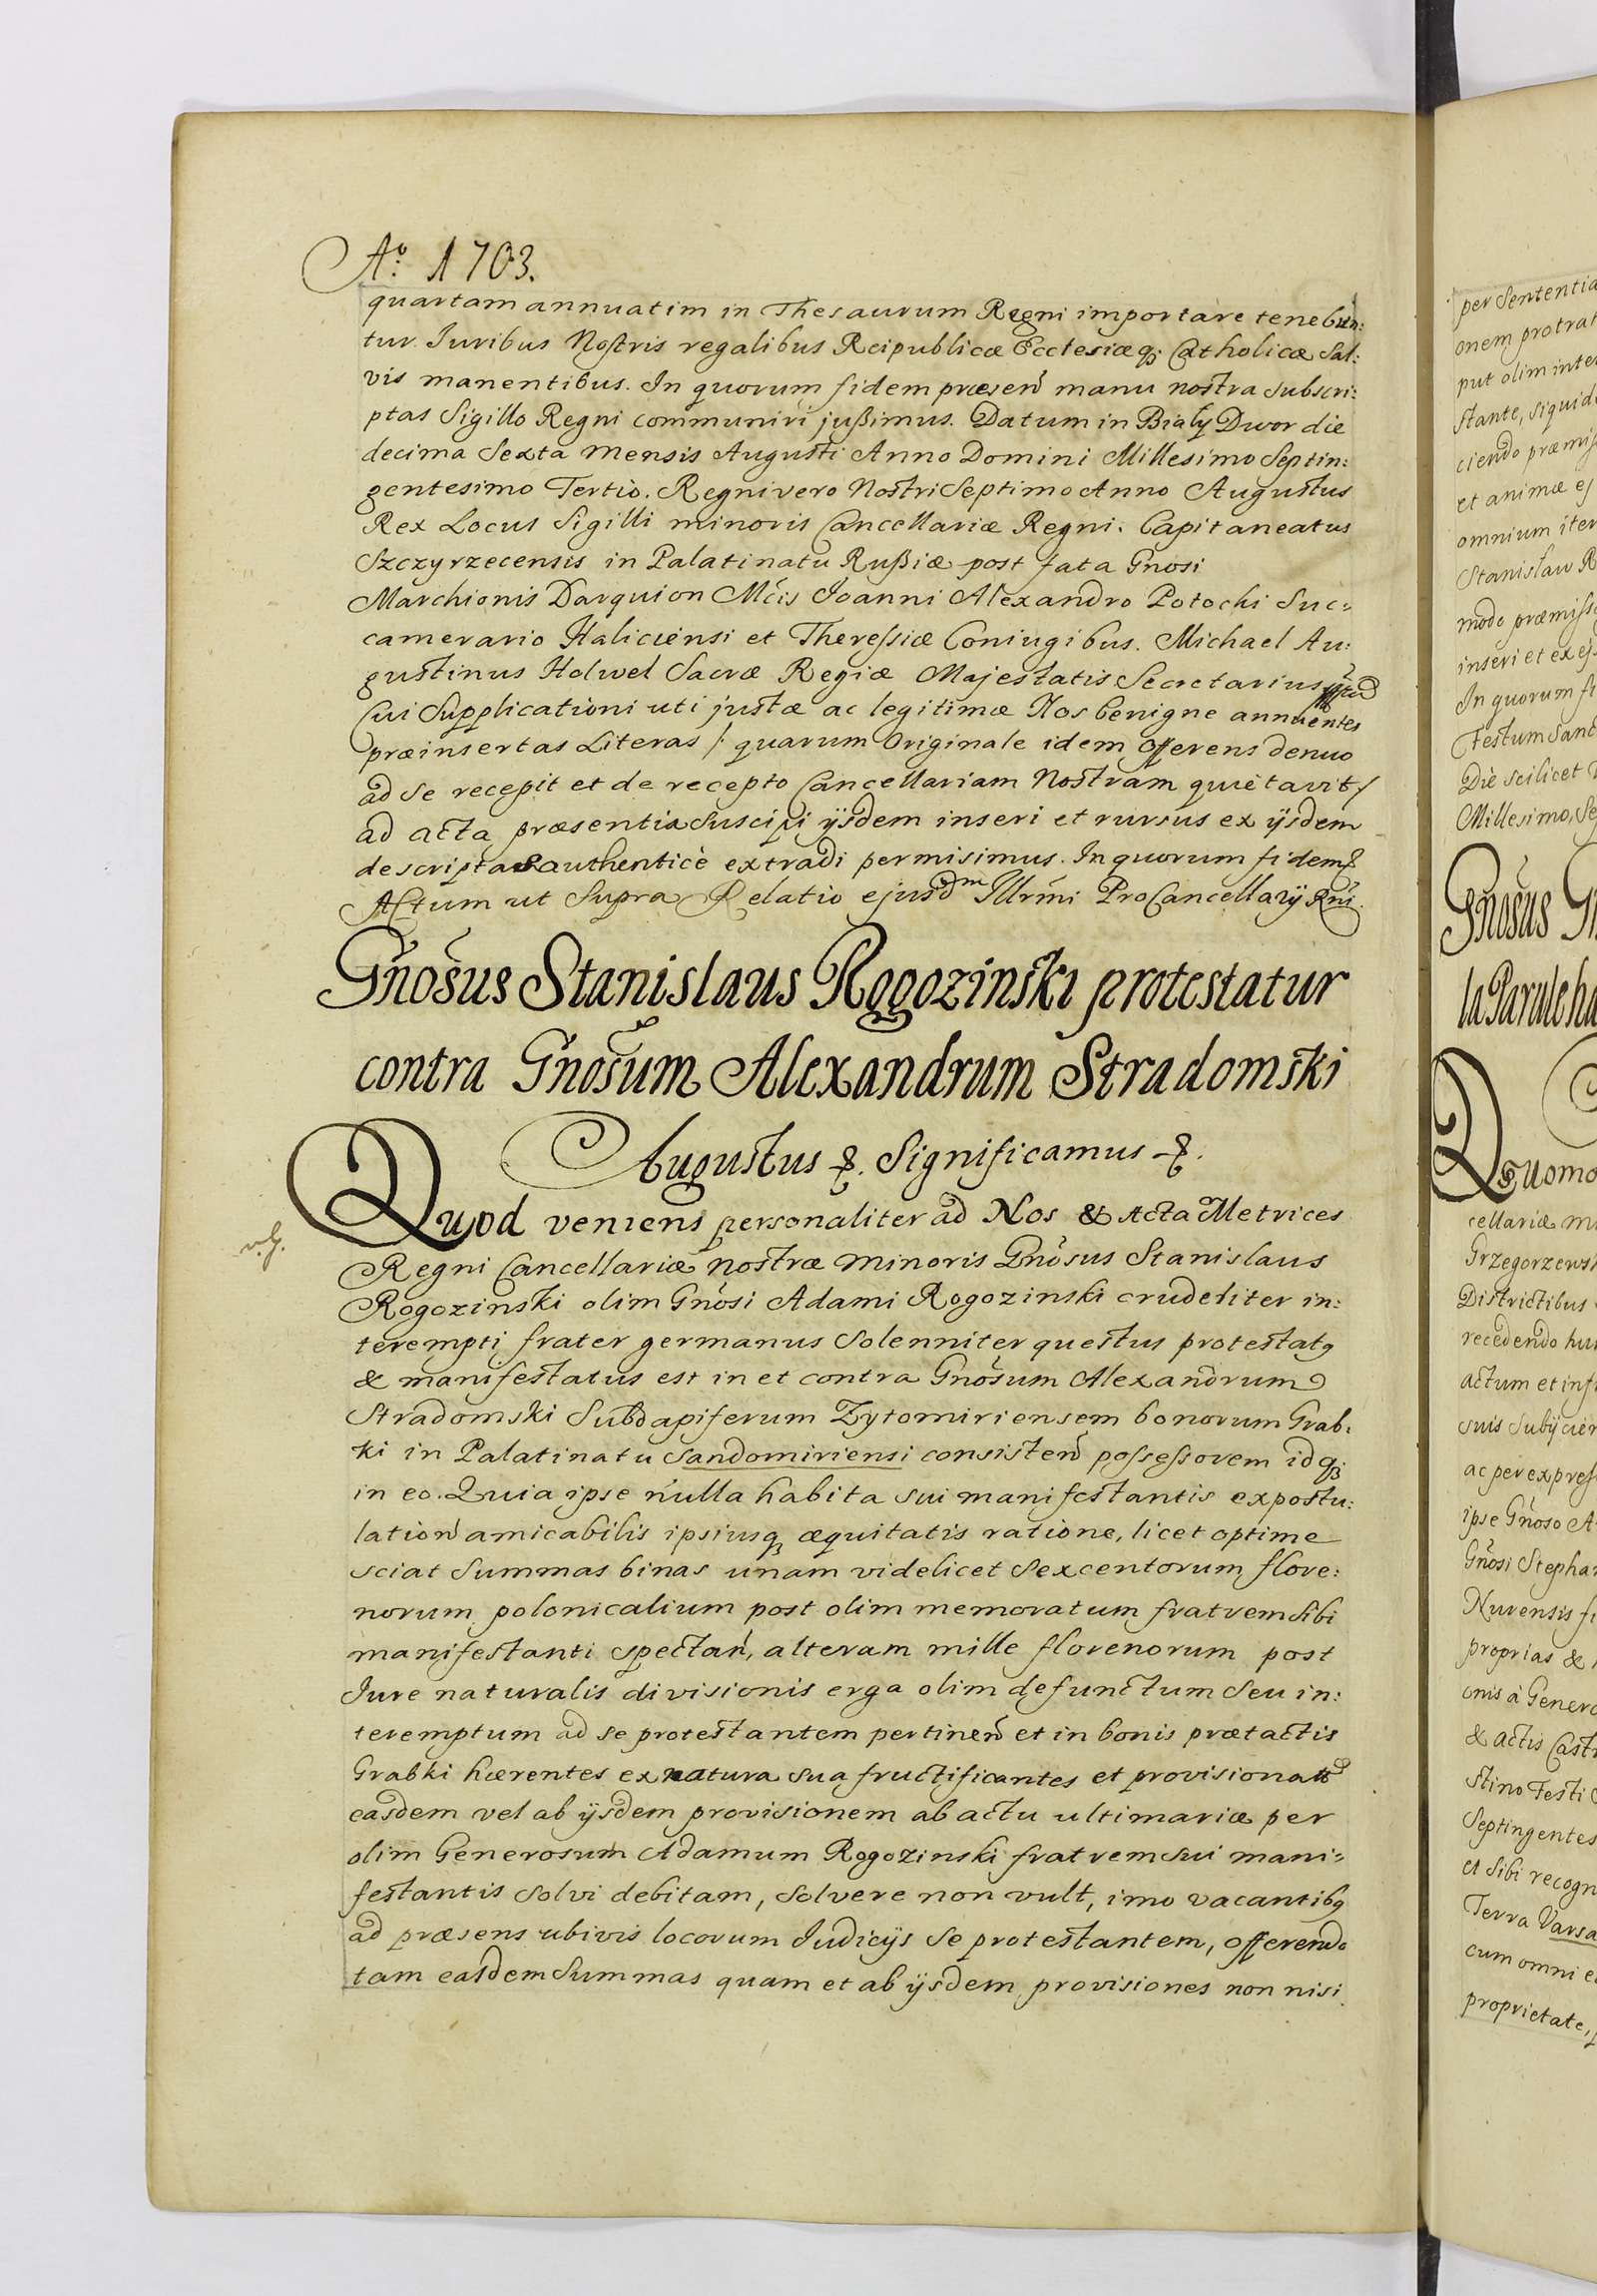 Aº 1703.
quartam annuatim in Thesaurum Regni importare tenebun:
tur. Iuribus Nostris regalibus Reipublicæ Ecclesiæq; Catholicæ Sal:
vis manentibus. In quorum fidem præsen̄ manu nostra subscri:
ptas Sigillo Regni communiri jußimus. Datum in Biały Dwor die
decima Sexta Mensis Augusti Anno Domini Millesimo Septin:
gentesimo Tertio. Regni vero Nostri Septimo Anno Augustus
Rex Locus Sigilli minoris Cancellariæ Regni. Capitaneatus
Szczyrzecensis in Palatinatu Rußiæ post fata Gnosi
Marchionis Darquion Mcis Joanni Alexandro Potocki Suc=
camerario Haliciensi et Theressiæ Coniugibus. Michael Au:
gustinus Holwel Sacræ Regiæ Majestatis Secretarius
Cui Supplicationi uti justæ ac legitimæ Nos benigne annuentes
præinsertas Literas /: quarum Originale idem Offerens denuo
ad se recepit et de recepto Cancellariam Nostram quietavit /
ad acta præsentia suscipi ijsdem inseri et rursus ex ijsdem
descriptas authenticè extradi permisimus. In quorum fidem &
Actum ut Supra Relatio ejusdm Illrmi ProCancellarij Rni.
Gnosus Stanislaus Rogozinski protestatur
contra Gnosum Alexandrum Stradomski
Augustus &. Significamus &.
Quod veniens personaliter ad Nos & Acta Metrices
Regni Cancellariæ nostræ minoris Gnosus Stanislaus
Rogozinski olim Gnosi Adami Rogozinski crudeliter in:
terempti frater germanus Solenniter questus protestatq
& manifestatus est in et contra Gnosum Alexandrum
Stradomski Subdapiferum Zytomiriensem bonorum Grab.
ki in Palatinatu Sandomiriensi consisten̄ possessorem idq;
in eo. Quia ipse nulla habita sui manifestantis expostu:
lation̄ amicabilis ipsiusq; æquitatis ratione, licet optime
sciat Summas binas unam videlicet Sexcentorum flore:
norum polonicalium post olim memoratum fratrem Sibi
manifestanti spectan̄, alteram mille florenorum post
Iure naturalis divisionis erga olim defunctum Seu in:
teremptum ad se protestantem pertinen̄ et in bonis prætactis
Grabki hærentes ex natura sua fructificantes et provisionatt
easdem vel ab ijsdem provisionem ab actu ultimariæ per
olim Generosum Adamum Rogozinski fratrem sui mani=
festantis solvi debitam, Solvere non vult, imo vacantibq
ad præsens ubivis locorum Iudicijs Se protestantem, Offerendo
tam easdem Summas quam et ab ijsdem provisiones non nisi
per Sententia
onem protrat
put olim inte
stante, siquid
ciendo præmis
et animæ ej
omnium iter
Stanislaw R
modo præmiss
inseri et ex ej
In quorum fi
Festum Sanc
Die scilicet
Millesimo, Se
Gnosus
la Parule ha
Quomo
cellariæ mi
Grzegorzews
Districtibus
recedendo hu
actum et inf
suis Subijcien
ac per expres
ipse Gnoso A
Gnosi Stepha
Nurensis fi
proprias &
onis à Genero
& actis Cast
stino Festi
Septingentes
et Sibi recogn
Terra Varsa
cum omni e
proprietate,